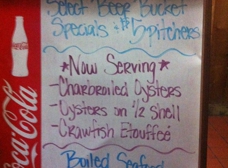 Select Beer Bucket
Specials + $5 pitchers
*Now Serving*
-Charbroiled Oysters
-Oysters on 1/2 Shell
-Crawfish Etouffeé
Boiled Seafood
Coca-Cola